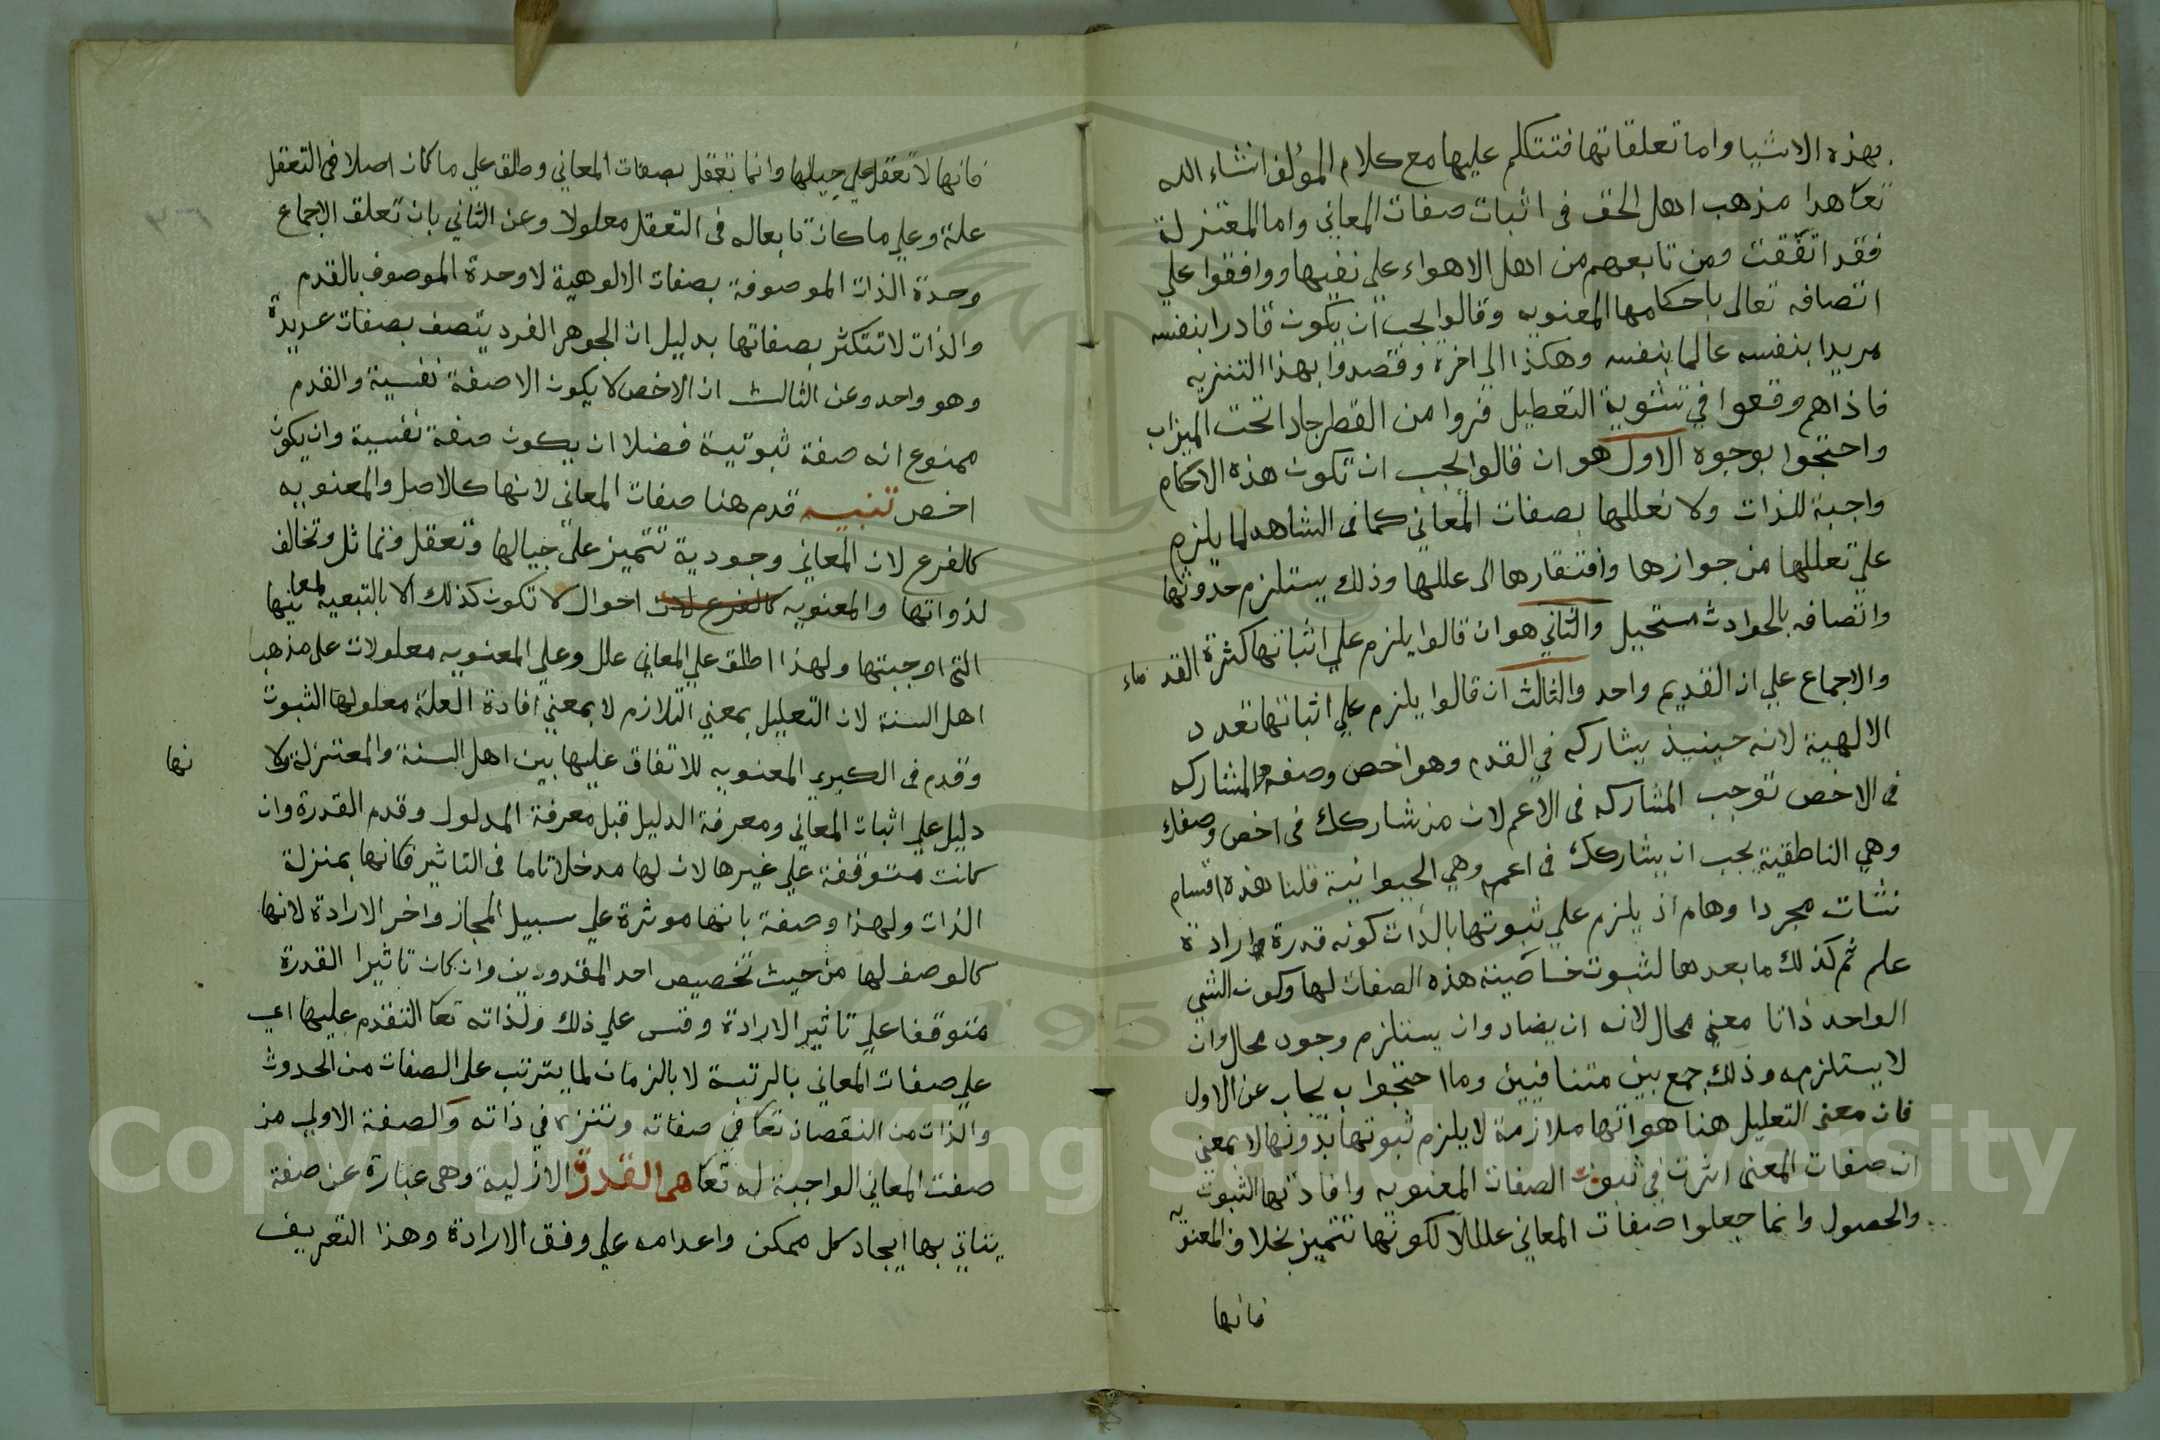 بهذه الاشيا واما تعلقاتها فتتكلم عليها مع كلام المؤلف انشاء الله
تعا هذا مذهب اهل الحق فى اثبات صفات المعاني واما المعتزلة
فقد اتفقت ومن تابعهم من اهل الاهواء علي نفيها ووافقوا علي
اتصافه تعالى باحكامها المعنويه وقالوا يجب ان يكون قادرا بنفسه
مريدا بنفسه عالما بنفسه وهكذا الي اخره وقصدوا بهذا التنزيه
فاذاهم وقعوا في التعطيل فروا من القطر جاد تحت الميزاب
واحتجوا بوجوه الاول هو ان قالوا يجب ان تكون هذه الاحكام
واجبة للذات ولا نعللها بصفات المعاني كما فى الشاهد لما يلزم
علي تعللها من جوازها وافتقارها الى عللها وذلك يستلزم حدوثها
واتصافه بالحوادث مستحيل والثاني هو ان قالوا يلزم علي اثباتها كثرة القدماء
والاجماع علي ان القديم واحد والثالث ان قالوا يلزم علي اثباتها تعدد
الالهية لانه حينيذ يشاركه في القدم وهو اخص وصفه والمشاركه
فى الاخص توجب المشاركه فى الاعم لان من شاركك فى اخص وصفك
وهي الناطقية يجب ان يشاركك فى اعمه وهي الحيوانية قلنا هذه اقسام
نشات مجردا وهام اذ يلزم علي ثبوتها بالذات كونه قدرة وارادة
علم ثم كذلك ما بعدها لثبوت خاصية هذه الصفات لها وكون الشي
الواحد ذاتا معني محال لانه ان يضاد وان يستلزم وجود محال وان
لا يستلزمه وذلك جمع بين متنافيين وما احتجوا به يجاب عن الاول
فان معنى التعليل هنا هو انها ملازمة لا يلزم ثبوتها بدونها لا بمعني
ان صفات المعنى اثرت في ثبوت الصفات المعنويه وافادتها الثبوت
والحصول وانما جعلوا صفات المعاني عللا لكونها تتميز بخلاف المعنويه
فانها
فانها لا تعقل علي حيالها وانما تعقل بصفات المعاني وطلق علي ما كان اصلا فى التعقل
علة وعلي ما كان تابعا له فى التعقل معلولا وعن الثاني بان تعلق الاجماع
وحدة الذات الموصوفة بصفات الالوهية لا وحدة الموصوف بالقدم
والذات لا تتكثر بصفاتها بدليل ان الجوهر الفرد يتصف بصفات عديدة
وهو واحد وعن الثالث ان الاخص لا يكون الا صفة نفسية والقدم
ممنوع انه صفة ثبوتية فضلا ان يكون صفة نفسية وان يكون
اخص تنبيه قدم هنا صفات المعاني لانها كالاصل والمعنويه
كالفرع لان المعاني وجودية تتميز علي حيالها وتعقل وتماثل وتخالف
لذواتها والمعنويه كالفرع لان احوال لا تكون كذلك الا بالتبعية لمعانيها
التى اوجبتها ولهذا اطلق علي المعاني علل وعلي المعنويه معلولات على مذهب
اهل السنة لان التعليل بمعني التلازم لا بمعني افادة العلة معلولها الثبوت
وقدم فى الكبرى المعنويه للاتفاق عليها بين اهل السنة والمعتزلة ولا
نها
دليل علي اثبات المعاني ومعرفة الدليل قبل معرفة المدلول وقدم القدرة وان
كانت متوقفة علي غيرها لان لها مدخلا تاما فى التاثير فكانها بمنزلة
الذات ولهذا وصفة بانها موثرة علي سبيل المجاز واخر الارادة لانها
كالوصف لها من حيث تخصيص احد المقدورين وان كان تاثيرا القدرة
متوقفا علي تاثير الارادة وقس علي ذلك ولذاته تعا التقدم عليها اي
علي صفات المعاني بالرتبة لا بالزمان لما يترتب على الصفات من الحدوث
والذات من النقصان تعا في صفاته وتنزه في ذاته والصفة الاولي من
صفت المعاني الواجبة له تعا هى القدرة الازلية وهى عبارة عن صفة
يتاتي بها ايجاد كل ممكن واعدامه على وفق الارادة وهذا التعريف
Copyright © King Saud University
1957